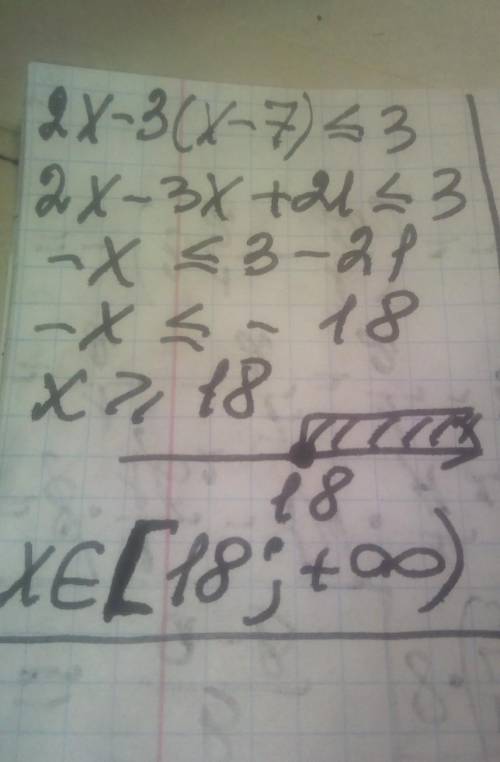 2x-3(x-7)≤3
2x-3x+21≤3
-x≤3-21
-x≤-18
x≥18
18
x∈[18;+∞)